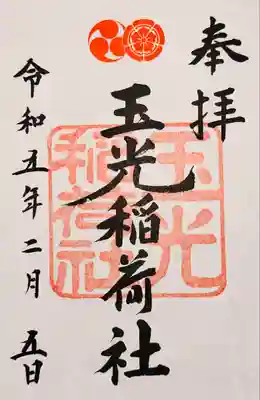 奉拝
玉光稲荷社
玉光
稲荷社
令和五年二月五日